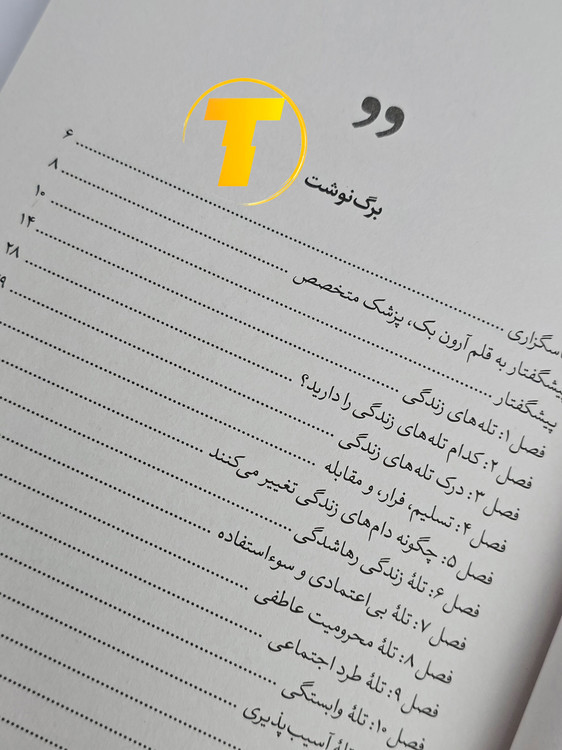 برگ‌نوشت
سگزاری ........ ۶
پیشگفتار به قلم آرون بک، پزشک متخصص ........ ۸
پیشگفتار ........ ۱۰
فصل ۱: تله‌های زندگی ........ ۱۴
فصل ۲: کدام تله‌های زندگی را دارید؟ ........ ۲۸
فصل ۳: درک تله‌های زندگی ........
فصل ۴: تسلیم، فرار، و مقابله ........
فصل ۵: چگونه دام‌های زندگی تغییر می‌کنند ........
فصل ۶: تلهٔ زندگی رهاشدگی ........
فصل ۷: تلهٔ بی‌اعتمادی و سوءاستفاده ........
فصل ۸: تلهٔ محرومیت عاطفی ........
فصل ۹: تلهٔ طرد اجتماعی ........
فصل ۱۰: تلهٔ وابستگی ........
تلهٔ آسیب‌پذیری ........